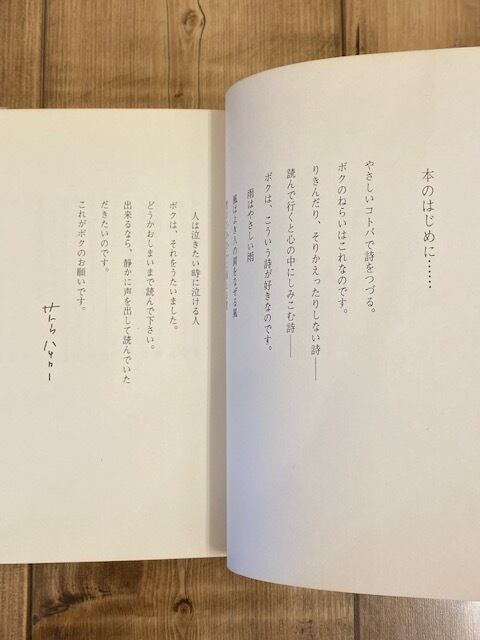 本のはじめに……
やさしいコトバで詩をつづる。
ボクのねらいはこれなのです。
りきんだり、そりかえったりしない詩――
読んで行くと心の中にしみこむ詩――
ボクは、こういう詩が好きなのです。
雨はやさしい雨
風はよき人の頬をなぜる風
人は泣きたい時に泣ける人
ボクは、それをうたいました。
どうかおしまいまで読んで下さい。
出来るなら、静かに声を出して読んでいた
だきたいのです。
これがボクのお願いです。
サトウハチロー